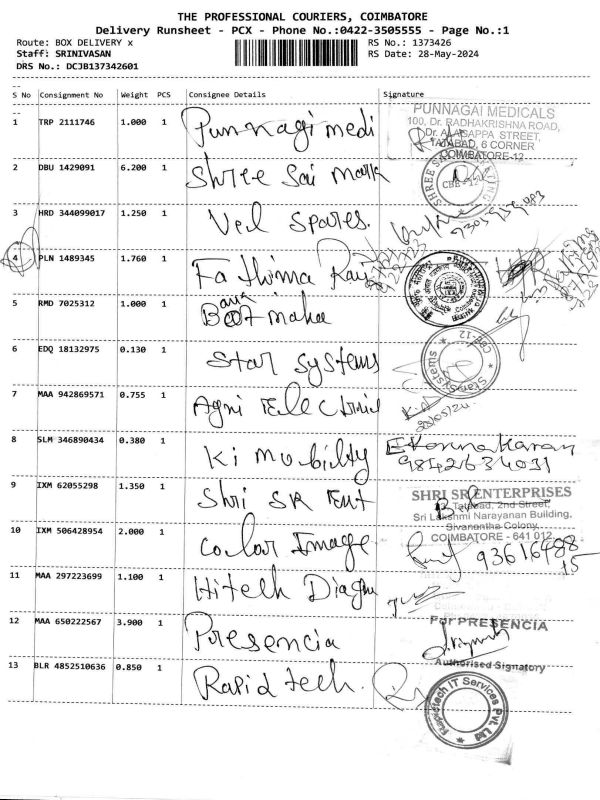 THE PROFESSIONAL COURIERS, COIMBATORE
Delivery Runsheet - PCX - Phone No.:0422-3505555 - Page No.:1
Route: BOX DELIVERY x RS No.: 1373426
Staff: SRINIVASAN RS Date: 28-May-2024
DRS No.: DCJB137342601
S No Consignment No Weight PCS Consignee Details Signature
1 TRP 2111746 1.000 1 Punnagi medi
PUNNAGAI MEDICALS
100, Dr. RADHAKRISHNA ROAD,
Dr. ALAGAPPA STREET,
TATABAD, 6 CORNER
COIMBATORE-12
2 DBU 1429091 6.200 1 Shree Sai Mark
CBE-12
3 HRD 344099017 1.250 1 Vel Spares.
4 PLN 1489345 1.760 1 Fathima Ray
5 RMD 7025312 1.000 1
6 EDQ 18132975 0.130 1 Star Systems
CBE-12
7 MAA 942869571 0.755 1 Agni Electrical
28/05/24
8 SLM 346890434 0.380 1 Ki mobility
9842634031
9 IXM 62055298 1.350 1 Shri SR Ent
SHRI SR ENTERPRISES
Tatabad, 2nd Street,
Sri Lakshmi Narayanan Building,
Sivanantha Colony,
COIMBATORE - 641 012
10 IXM 506428954 2.000 1 Color Image
11 MAA 297223699 1.100 1 Hitech Diagn
12 MAA 650222567 3.900 1 Presencia
For PRESENCIA
Authorised Signatory
13 BLR 4852510636 0.850 1 Rapid tech.
IT Services Pvt. Ltd